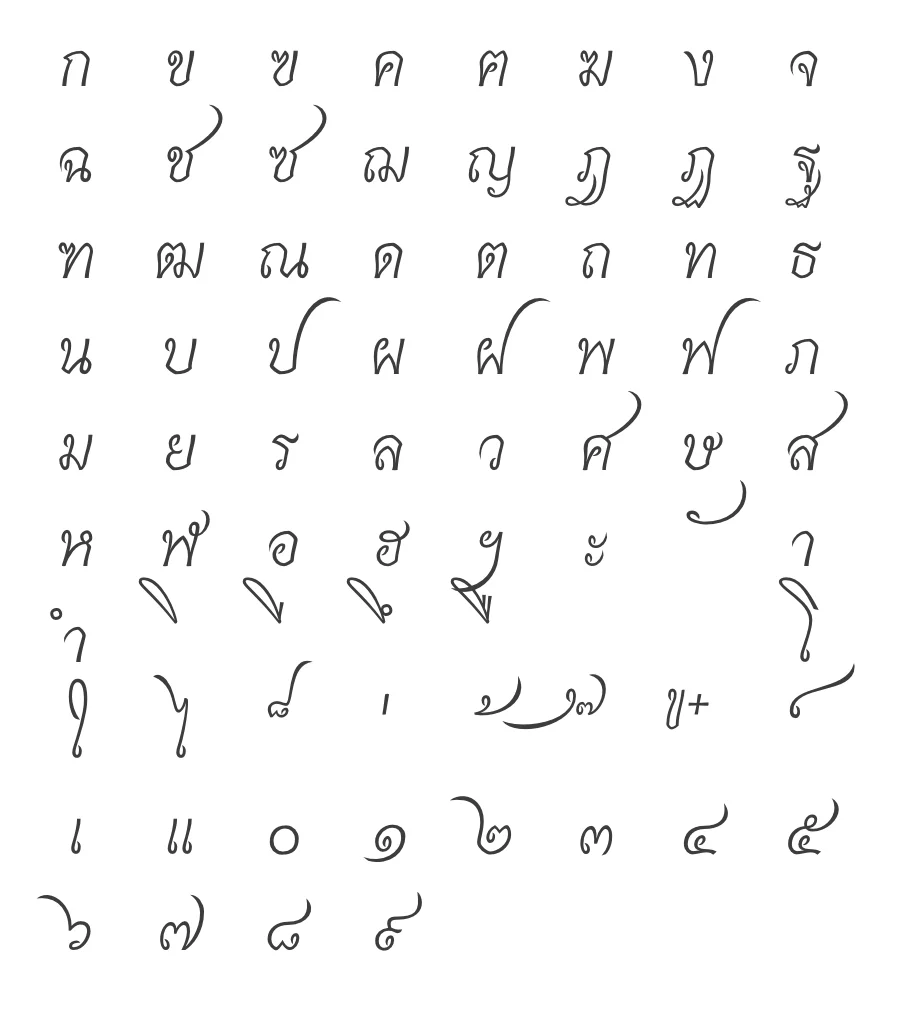 ก ข ฃ ค ฅ ฆ ง จ
ฉ ช ซ ฌ ญ ฎ ฏ ฐ
ฑ ฒ ณ ด ต ถ ท ธ
น บ ป ผ ฝ พ ฟ ภ
ม ย ร ล ว ศ ษ ส
ห ฬ อ ฮ ฯ ะ ั า
ำ ิ ี ึ ื โ
ใ ไ ็ ่ ้ ๊ ๋ ์
เ แ ๐ ๑ ๒ ๓ ๔ ๕
๖ ๗ ๘ ๙